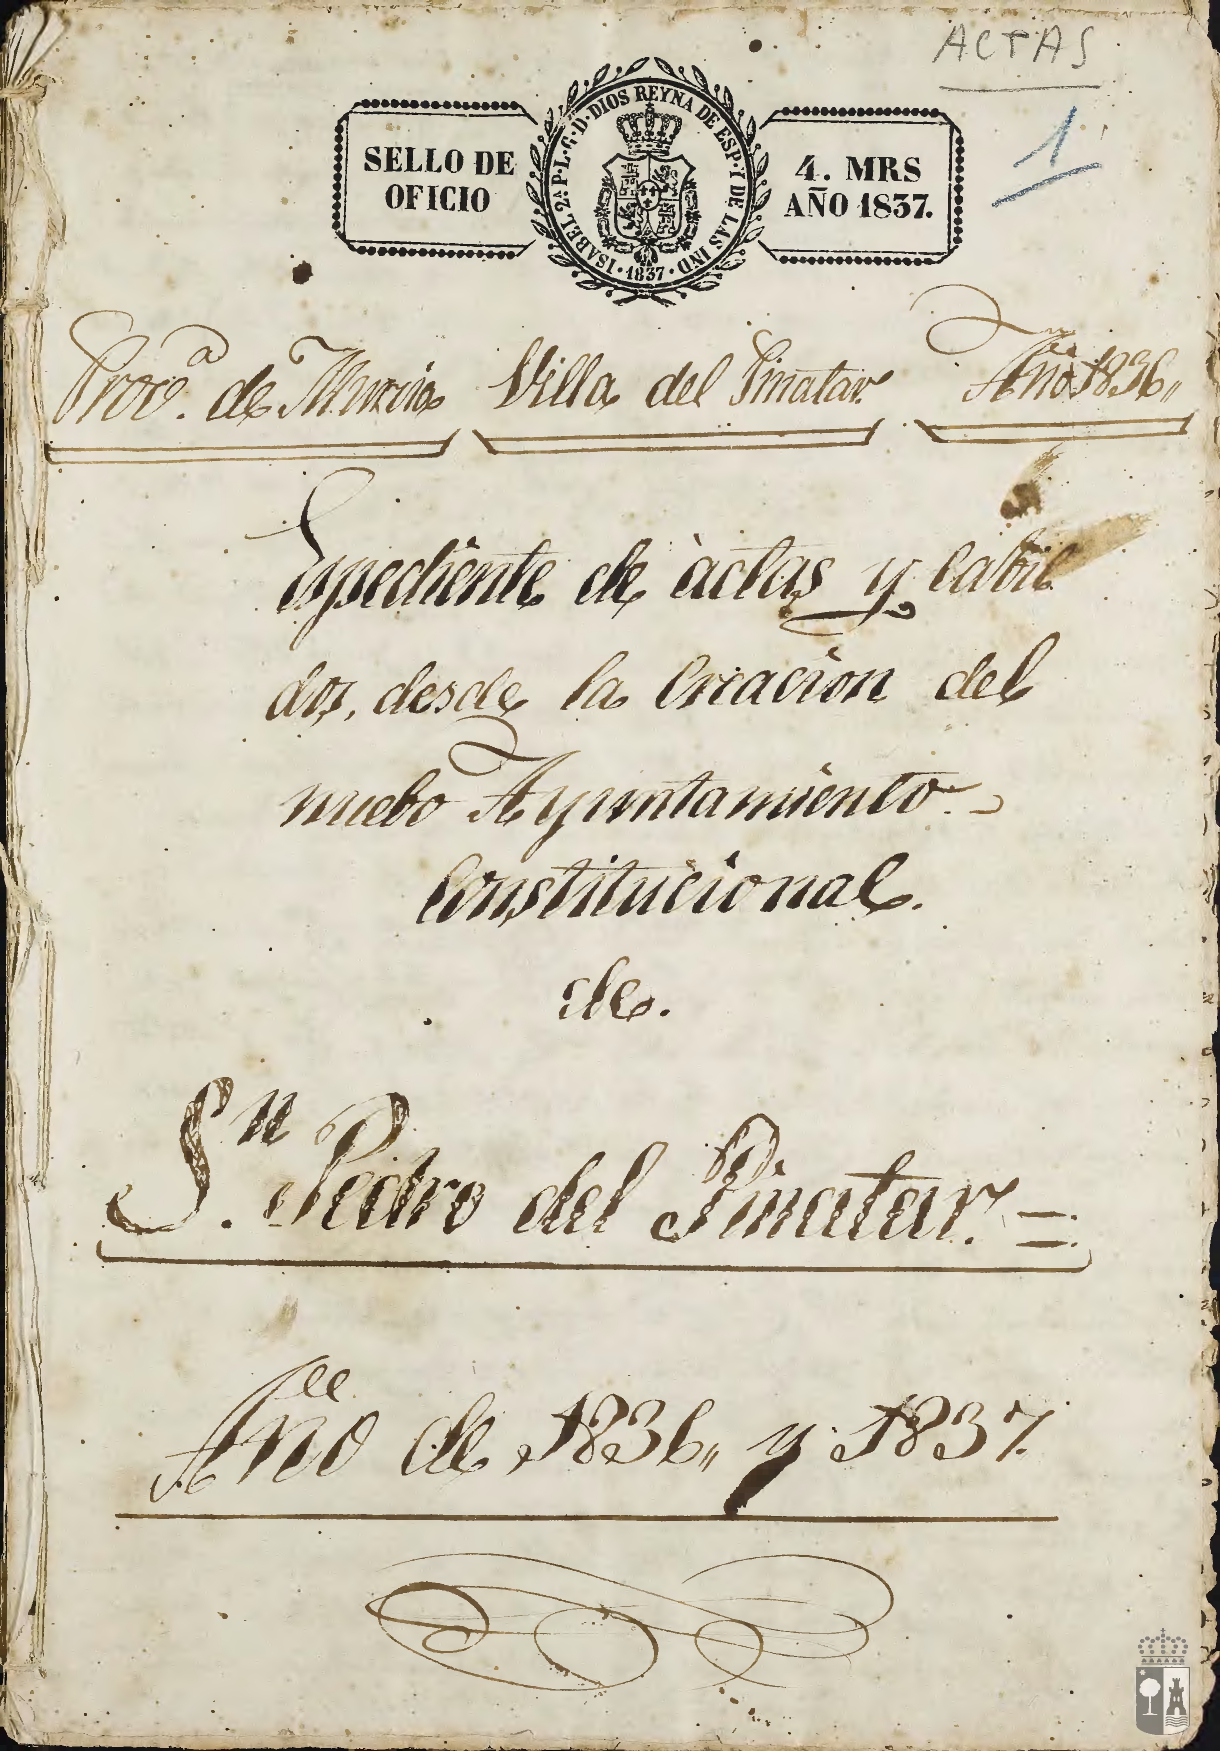 ACTAS
1
SELLO DE
OFICIO
ISABEL 2ª P·L·G·D·DIOS REYNA DE ESP·Y DE LAS IND
·1837·
4. MRS
AÑO 1837.
Provª. de Murcia Villa del Pinatar Año 1836,,
Espediente de àctas y Cabil
dos, desde la Creacion del
nuebo Ayuntamiento
Constitucional.
de.
Sn. Pedro del Pinatar. =
Año de 1836,, y 1837.